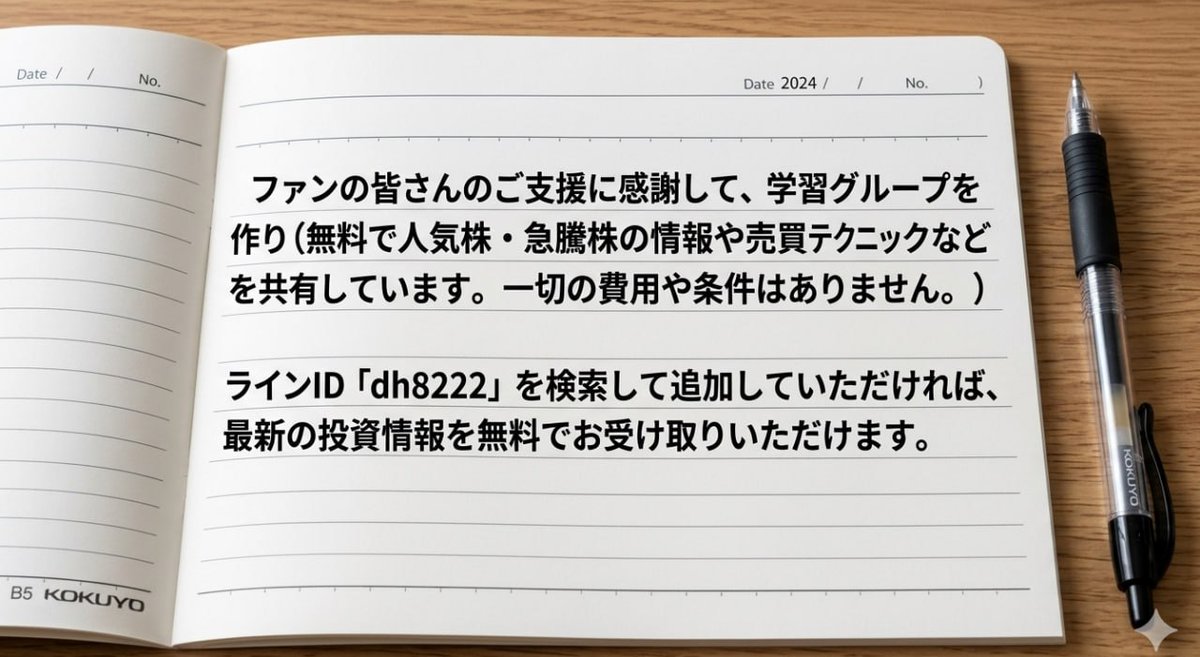 Date / / No.
Date 2024 / / No. )
ファンの皆さんのご支援に感謝して、学習グループを
作り（無料で人気株・急騰株の情報や売買テクニックなど
を共有しています。一切の費用や条件はありません。）
ラインID「dh8222」を検索して追加していただければ、
最新の投資情報を無料でお受け取りいただけます。
B5 KOKUYO
KOKUYO